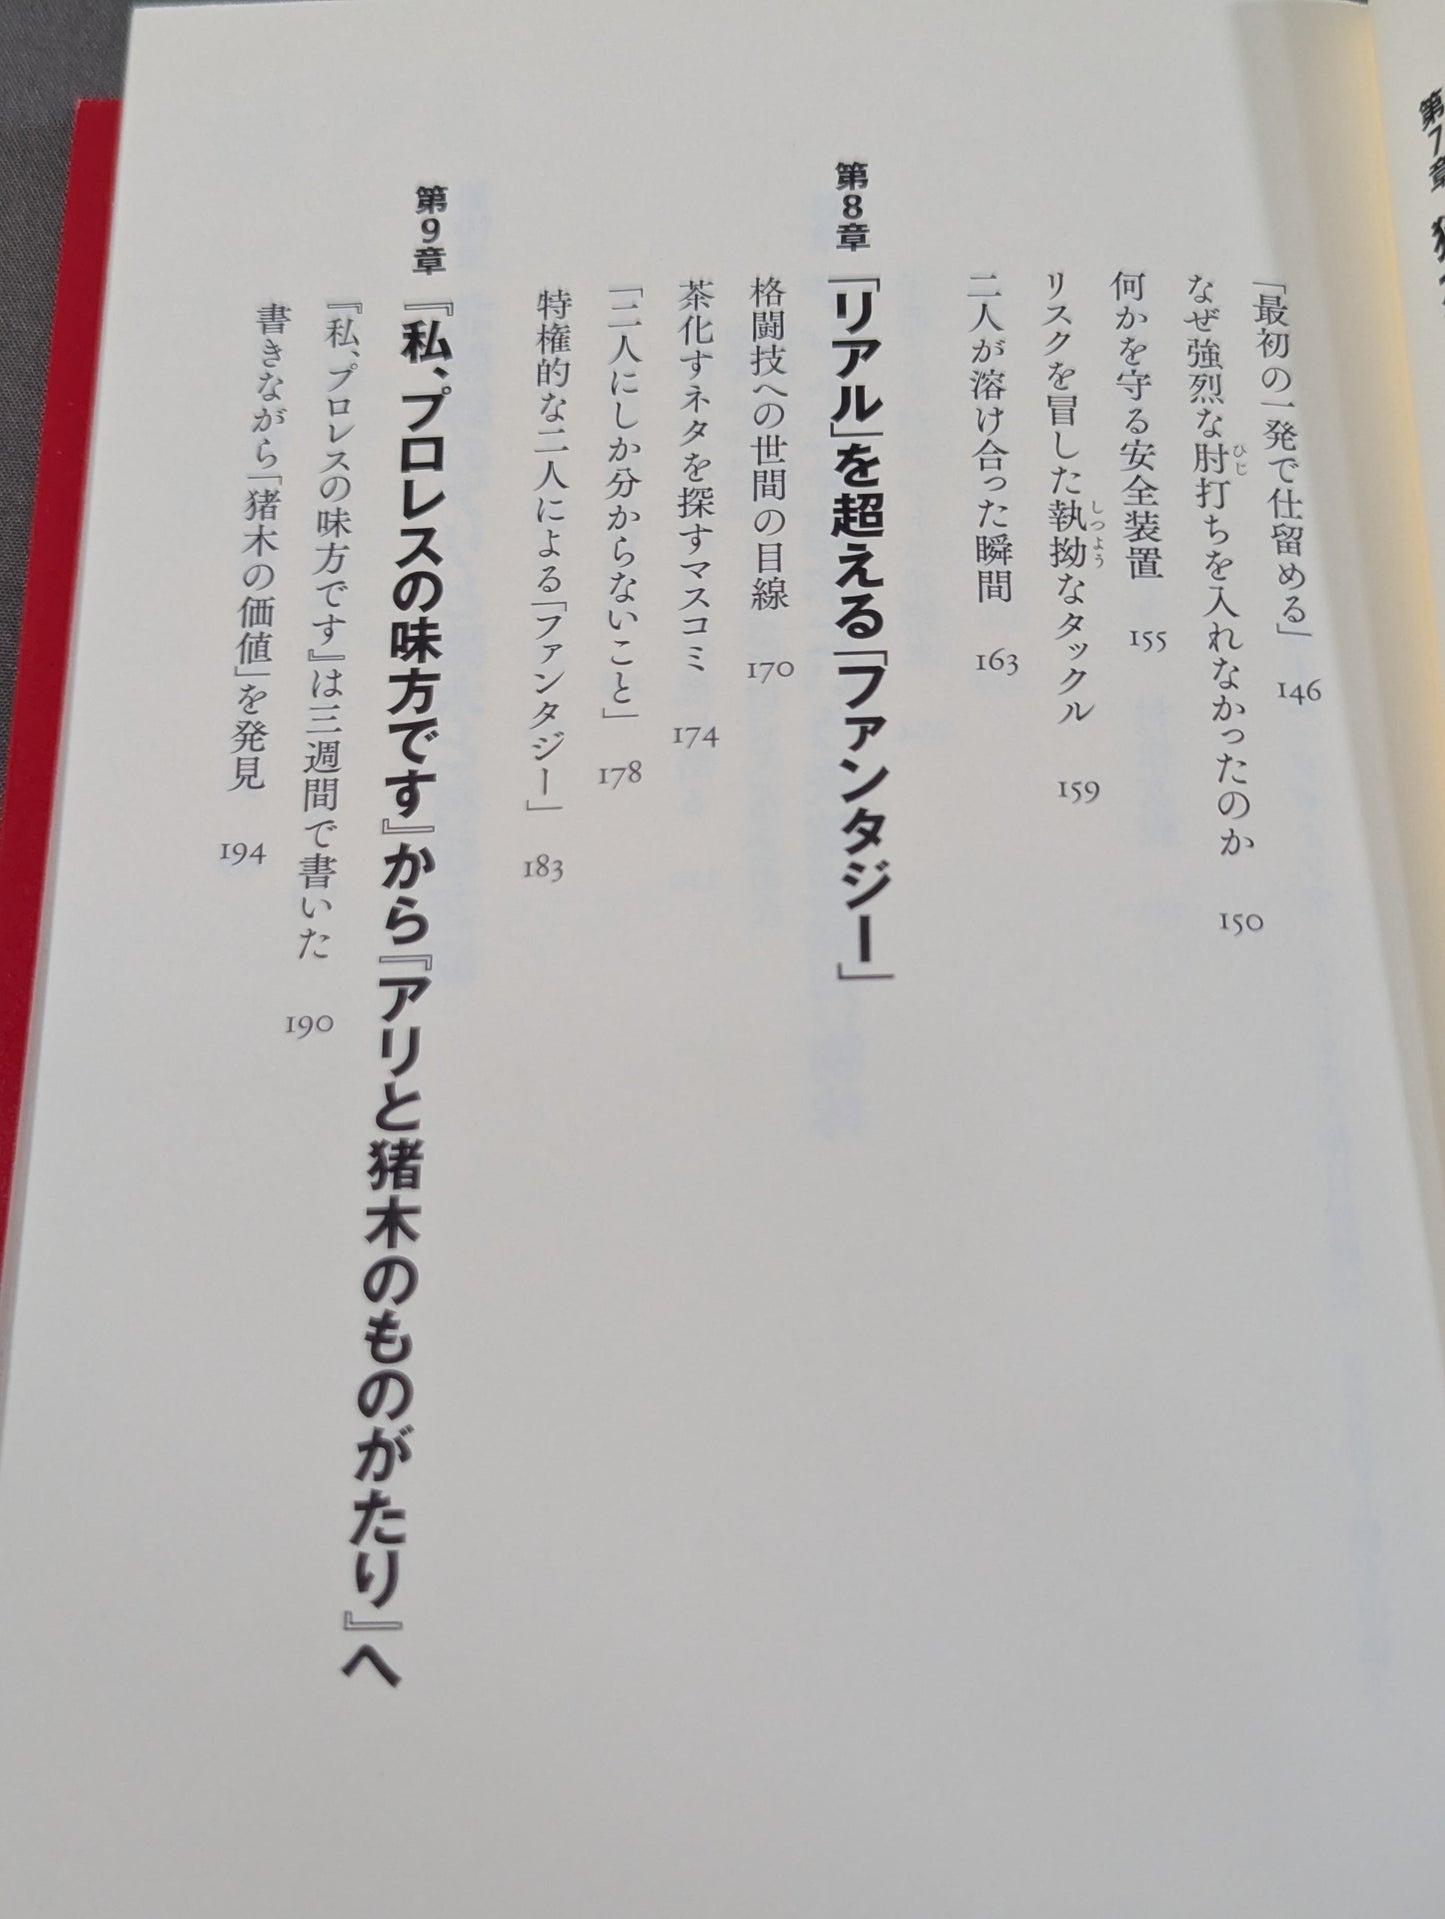 第7章
「最初の一発で仕留める」 146
なぜ強烈な肘打ちを入れなかったのか 150
ひじ
何かを守る安全装置 155
リスクを冒した執拗なタックル 159
しつよう
二人が溶け合った瞬間 163
第8章 「リアル」を超える「ファンタジー」
格闘技への世間の目線 170
茶化すネタを探すマスコミ 174
「二人にしか分からないこと」 178
特権的な二人による「ファンタジー」 183
第9章 『私、プロレスの味方です』から『アリと猪木のものがたり』へ
『私、プロレスの味方です』は三週間で書いた 190
書きながら「猪木の価値」を発見 194